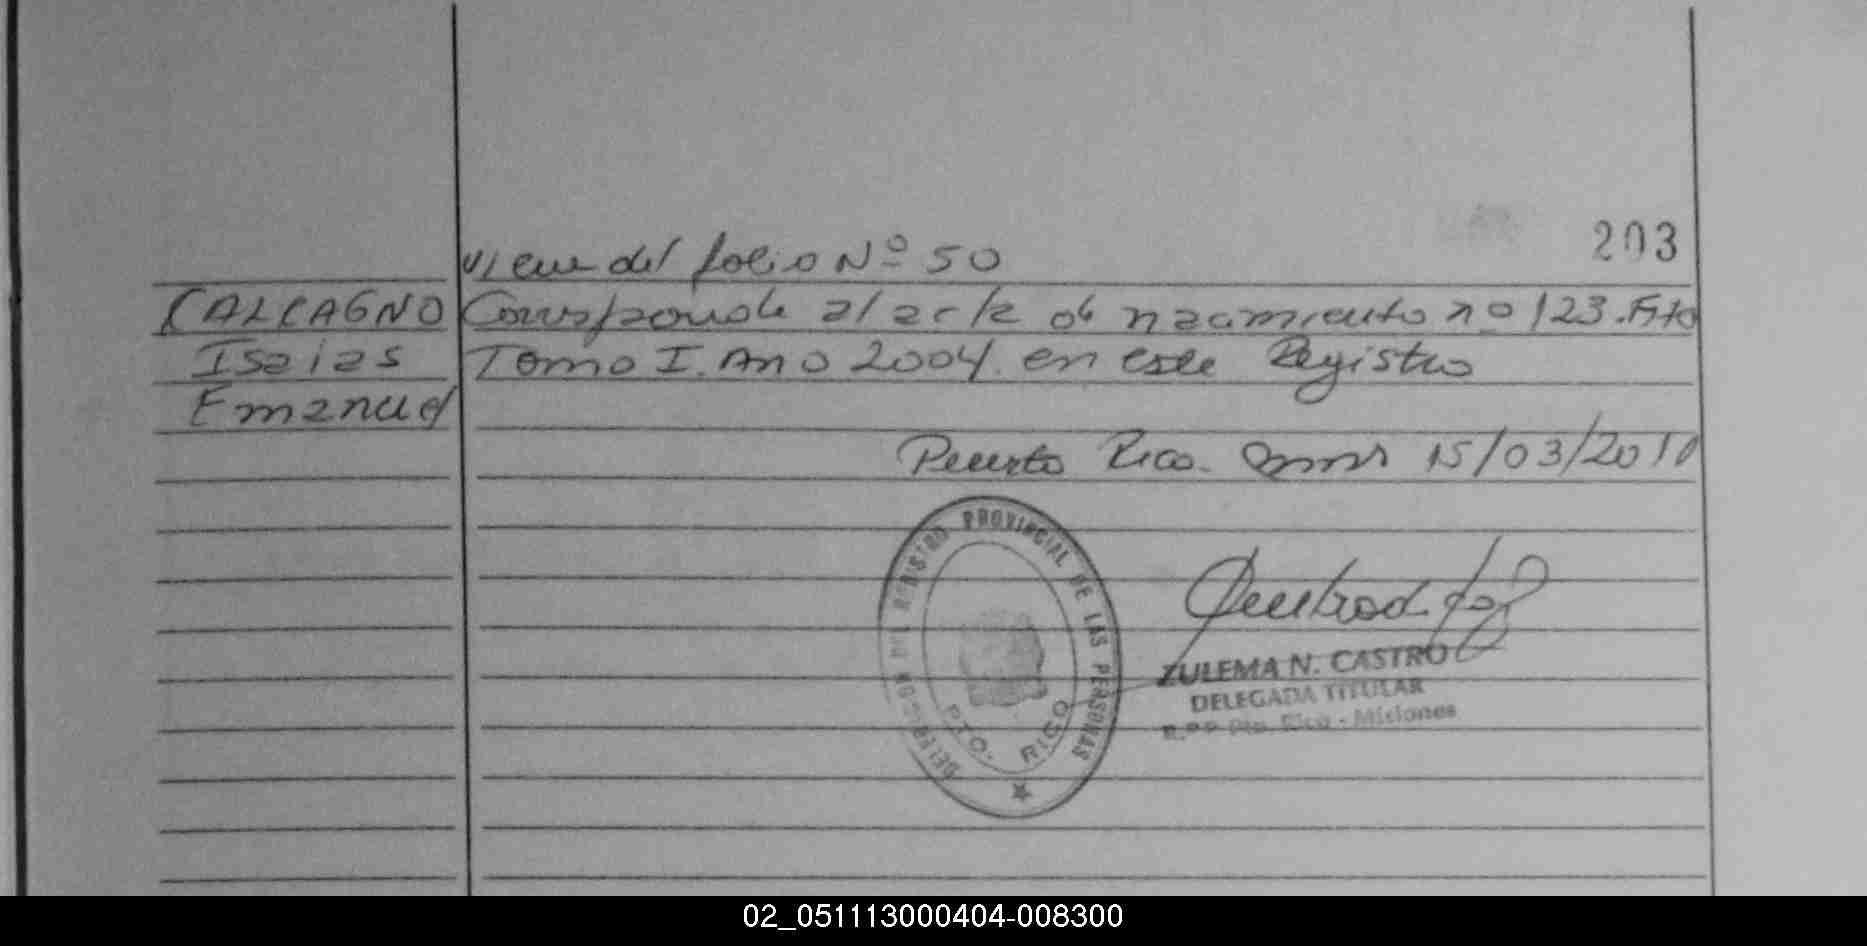 203
Viene del folio Nº 50
CALCAGNO Corresponde al acta de nacimiento nº 123. Fto
Isaias Tomo I. Año 2004. en este Registro
Emanuel
Puerto Rico. Mnes 15/03/2010
DELEGACION DEL REGISTRO PROVINCIAL DE LAS PERSONAS
PTO. RICO
ZULEMA N. CASTRO
DELEGADA TITULAR
R.P.P Pto. Rico - Misiones
02_051113000404-008300